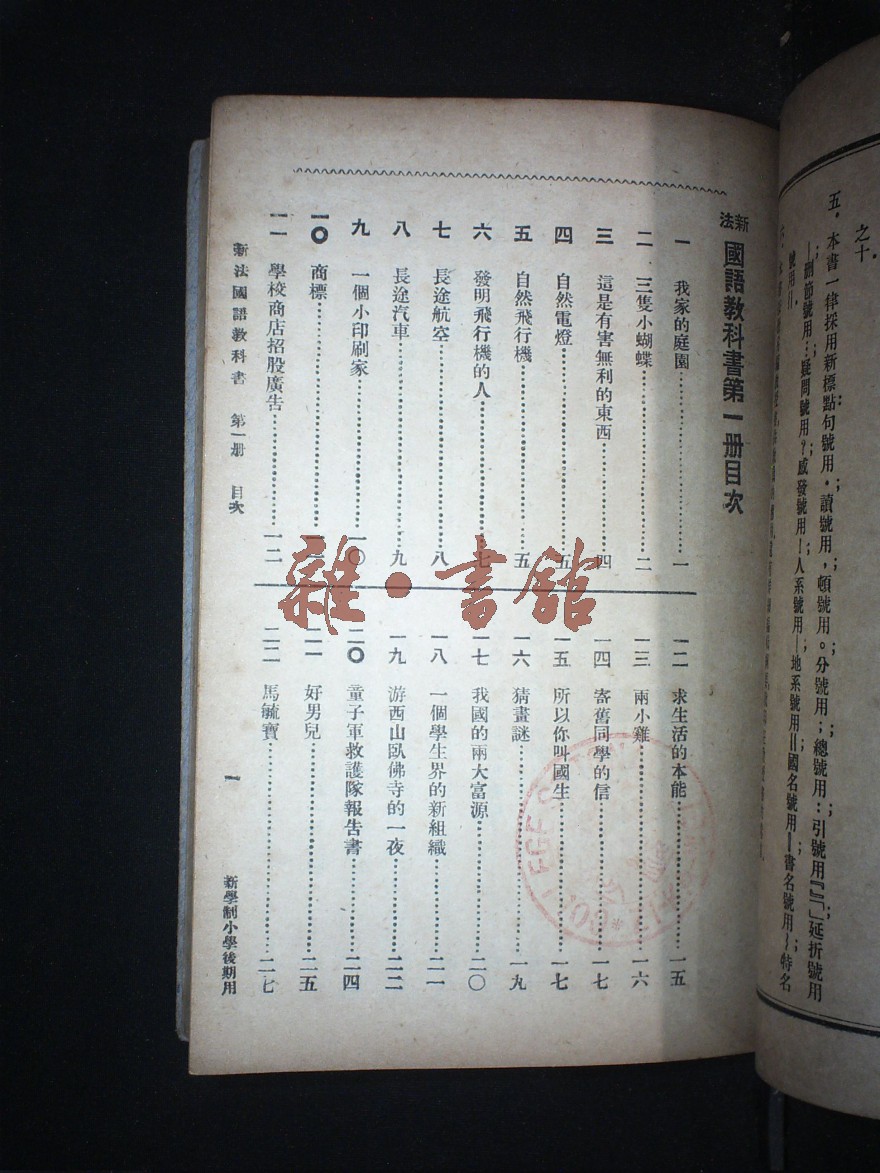 之十.
五.本書一律採用新標點句號用.讀號用,頓號用。分號用;總號用:引號用『』「」延折號用
—刪節號用…疑問號用?感發號用!人系號用—地系號用‖國名號用‖書名號用~特名
號用‖
新法國語教科書第一册目次
一 我家的庭園 一
二 三隻小蝴蝶 二
三 這是有害無利的東西 四
四 自然電燈 五
五 自然飛行機 五
六 發明飛行機的人 七
七 長途航空 八
八 長途汽車 九
九 一個小印刷家 一〇
一〇 商標
一一 學校商店招股廣告 一二
一二 求生活的本能 一五
一三 兩小雞 一六
一四 寄舊同學的信 一七
一五 所以你叫國生 一七
一六 猜畫謎 一九
一七 我國的兩大富源 二〇
一八 一個學生界的新組織 二一
一九 游西山臥佛寺的一夜 二二
二〇 童子軍救護隊報告書 二四
二一 好男兒 二五
二二 馬毓寶 二七
新法國語教科書 第一册 目次
一
新學制小學後期用
雜·書館